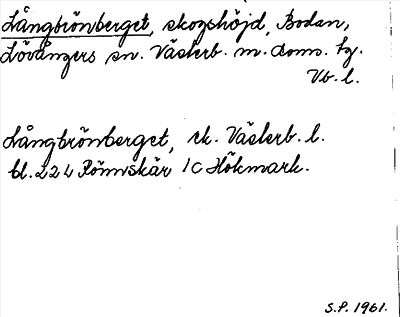 Långbrönberget, skogshöjd, Bodan,
Lövångers sn. Västerb. m. doms. tg.
Vb. l.
Långbrönberget, ek. Västerb. l.
bl. 22L Rönnskär 1C Hökmark.
S.P. 1961.